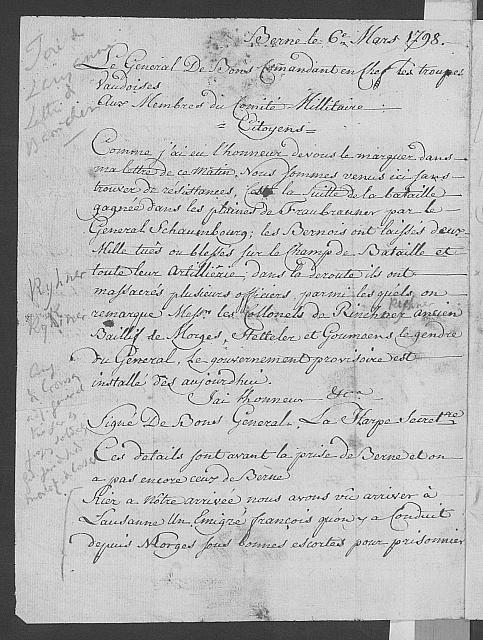 Berne le 6e Mars 1798.
Le General De Bons Comandant en Chef les troupes
Vaudoises
Aux Membres du Comité Millitaire
= Citoyens =
Comme j'ai eu l'honneur de vous le marquer dans
ma lettre de ce Matin, Nous sommes venus ici sans
trouver de resistances, c'est la suitte de la bataille
gagnée dans les plaines de Fraubrauner par le
General Schaumbourg; les Bernois ont laissés deux
Mille tués ou blessés sur le Champ de Bataille et
toute leur Artillerie; dans la deroute ils ont
massacrés plusieurs officiers, parmi les quels on
remarque Messrs les Collonels de
Ryhner
ancien
Baillif de Morges, Stetteler et Goumoens le gendre
du General, Le gouvernement provisoire est
installé dès aujourdhui.
J'ai l'honneur &ca
Signé De Bons General. La Harpe Secretre
Ces details sont avant la prise de Berne et on
a pas encore ceux de Berne
Hier a nôtre arrivée nous avons vû arriver à
Lausanne Un Emigré francois qu'on y a Conduit
depuis Morges sous bonnes escortes pour prisonnier
Ryhner
Ryhiner